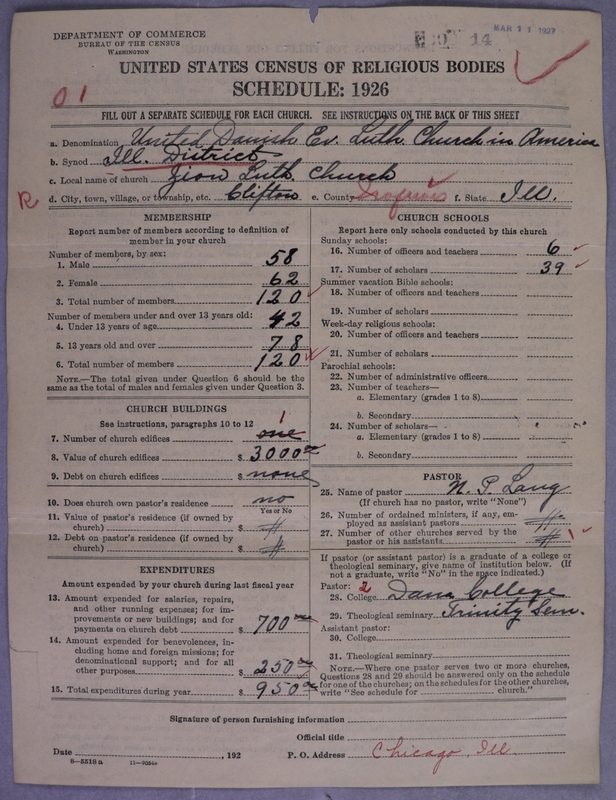 DEPARTMENT OF COMMERCE
BUREAU OF THE CENSUS
WASHINGTON
MAR 11 1927
14
UNITED STATES CENSUS OF RELIGIOUS BODIES
SCHEDULE: 1926
01
FILL OUT A SEPARATE SCHEDULE FOR EACH CHURCH. SEE INSTRUCTIONS ON THE BACK OF THIS SHEET
a. Denomination United Danish Ev. Luth. Church in America
b. Synod Ill. District
c. Local name of church Zion Luth. Church
R d. City, town, village, or township, etc. Clifton e. County Iroquois f. State Ill.
MEMBERSHIP
Report number of members according to definition of
member in your church
Number of members, by sex:
1. Male 58
2. Female 62
3. Total number of members 120
Number of members under and over 13 years old:
4. Under 13 years of age 42
5. 13 years old and over 78
6. Total number of members 120
NOTE.—The total given under Question 6 should be the
same as the total of males and females given under Question 3.
CHURCH BUILDINGS
See instructions, paragraphs 10 to 12
1
7. Number of church edifices one
8. Value of church edifices $ 3000 00
9. Debt on church edifices $ none
10. Does church own pastor's residence no
Yes or No
11. Value of pastor's residence (if owned by
church) $
12. Debt on pastor's residence (if owned by
church) $
EXPENDITURES
Amount expended by your church during last fiscal year
13. Amount expended for salaries, repairs,
and other running expenses; for im-
provements or new buildings; and for
payments on church debt $ 700
14. Amount expended for benevolences, in-
cluding home and foreign missions; for
denominational support; and for all
other purposes $ 250 00
15. Total expenditures during year $ 950 00
CHURCH SCHOOLS
Report here only schools conducted by this church
Sunday schools:
16. Number of officers and teachers 6
17. Number of scholars 39
Summer vacation Bible schools:
18. Number of officers and teachers
19. Number of scholars
Week-day religious schools:
20. Number of officers and teachers
21. Number of scholars
Parochial schools:
22. Number of administrative officers
23. Number of teachers—
a. Elementary (grades 1 to 8)
b. Secondary
24. Number of scholars—
a. Elementary (grades 1 to 8)
b. Secondary
PASTOR
25. Name of pastor N. P. Lang
(If church has no pastor, write "None")
26. Number of ordained ministers, if any, em-
ployed as assistant pastors
27. Number of other churches served by the
pastor or his assistants 1
If pastor (or assistant pastor) is a graduate of a college or
theological seminary, give name of institution below. (If
not a graduate, write "No" in the space indicated.)
Pastor: 2
28. College Dana College
29. Theological seminary Trinity Sem.
Assistant pastor:
30. College
31. Theological seminary
NOTE.—Where one pastor serves two or more churches,
Questions 28 and 29 should be answered only on the schedule
for one of the churches; on the schedules for the other churches,
write "See schedule for church."
Signature of person furnishing information
Official title
Date , 192 P. O. Address Chicago, Ill.
8—5518a